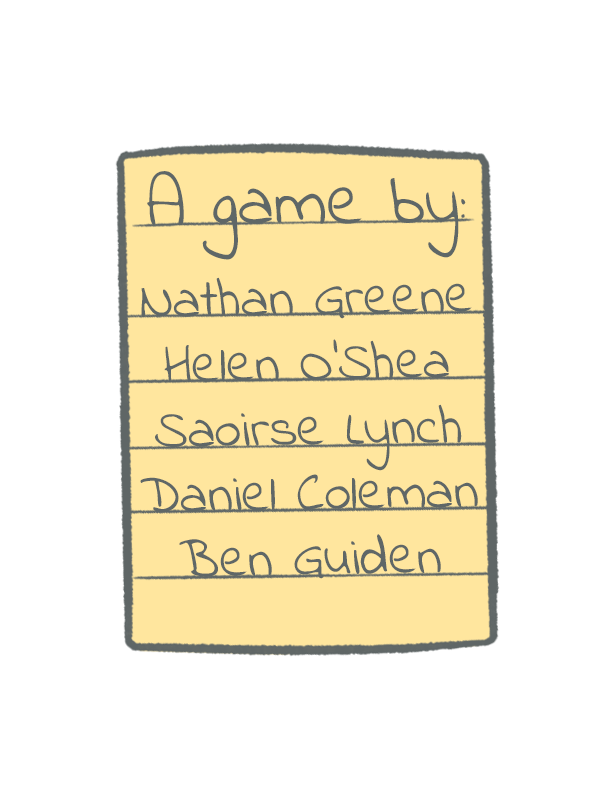 A game by:
Nathan Greene
Helen O'Shea
Saoirse Lynch
Daniel Coleman
Ben Guiden